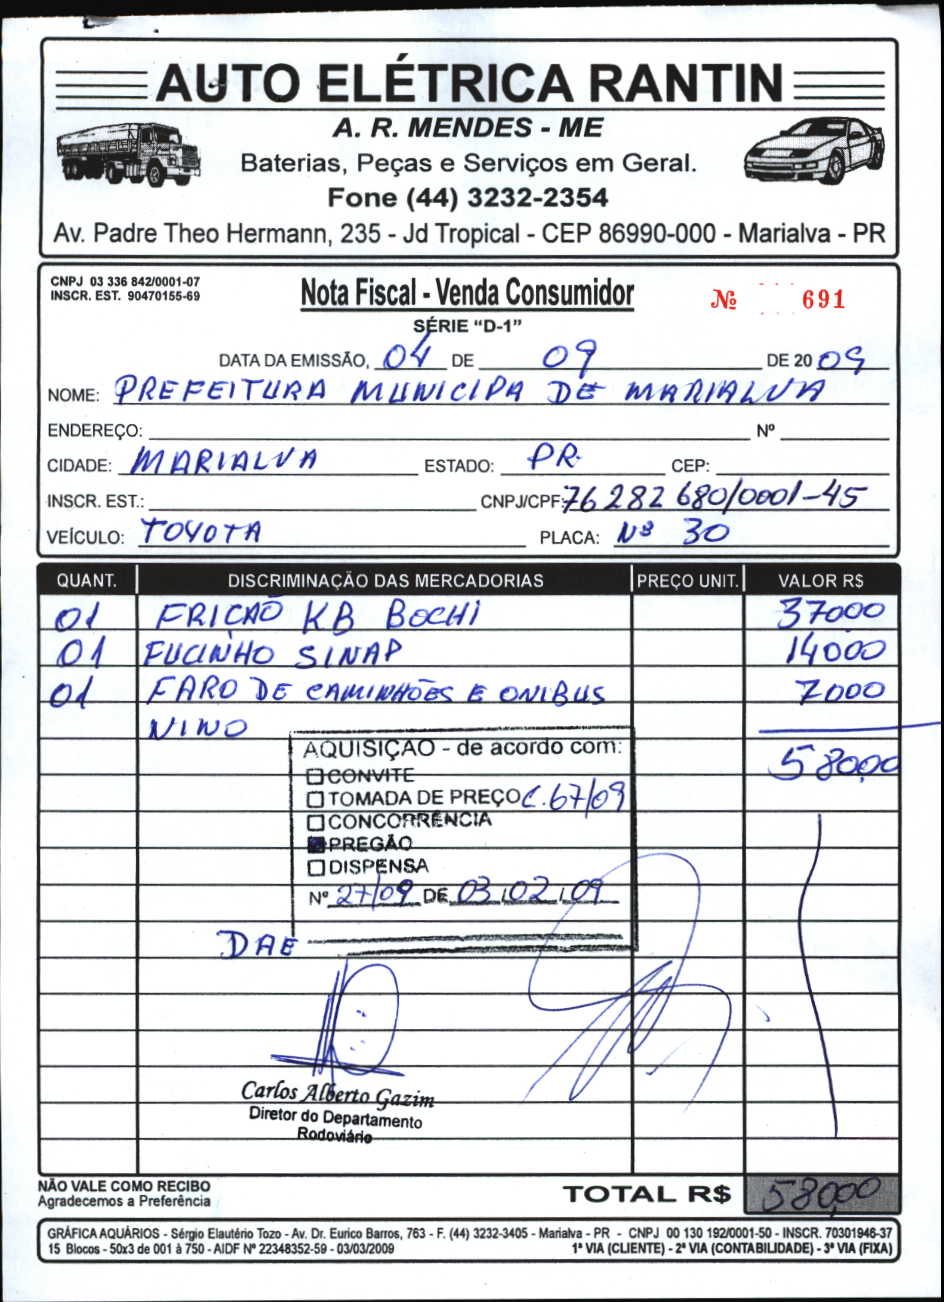 AUTO ELÉTRICA RANTIN
A. R. MENDES - ME
Baterias, Peças e Serviços em Geral.
Fone (44) 3232-2354
Av. Padre Theo Hermann, 235 - Jd Tropical - CEP 86990-000 - Marialva - PR
CNPJ 03 336 842/0001-07
INSCR. EST. 90470155-69
Nota Fiscal - Venda Consumidor
Nº 691
SÉRIE “D-1”
DATA DA EMISSÃO, 04 DE 09 DE 2009
NOME: PREFEITURA MUNICIPA DE MARIALVA
ENDEREÇO: Nº
CIDADE: MARIALVA ESTADO: PR. CEP:
INSCR. EST.: CNPJ/CPF: 76 282 680/0001-45
VEÍCULO: TOYOTA PLACA: Nº 30
QUANT. DISCRIMINAÇÃO DAS MERCADORIAS PREÇO UNIT. VALOR R$
01 FRICAO KB BOCHI 37000
01 FUCINHO SINAP 14000
01 FARO DE CAMINHÕES E ONIBUS 7000
NINO
58000
AQUISIÇÃO - de acordo com:
CONVITE
TOMADA DE PREÇO C.67/09
CONCORRÊNCIA
PREGÃO
DISPENSA
Nº 27/09 DE 03/02/09
DAE
Carlos Alberto Gazim
Diretor do Departamento
Rodoviário
NÃO VALE COMO RECIBO
Agradecemos a Preferência
TOTAL R$ 58000
GRÁFICA AQUÁRIOS - Sérgio Elautério Tozo - Av. Dr. Eurico Barros, 763 - F. (44) 3232-3405 - Marialva - PR - CNPJ 00 130 192/0001-50 - INSCR. 70301946-37
15 Blocos - 50x3 de 001 à 750 - AIDF Nº 22348352-59 - 03/03/2009 1ª VIA (CLIENTE) - 2ª VIA (CONTABILIDADE) - 3ª VIA (FIXA)